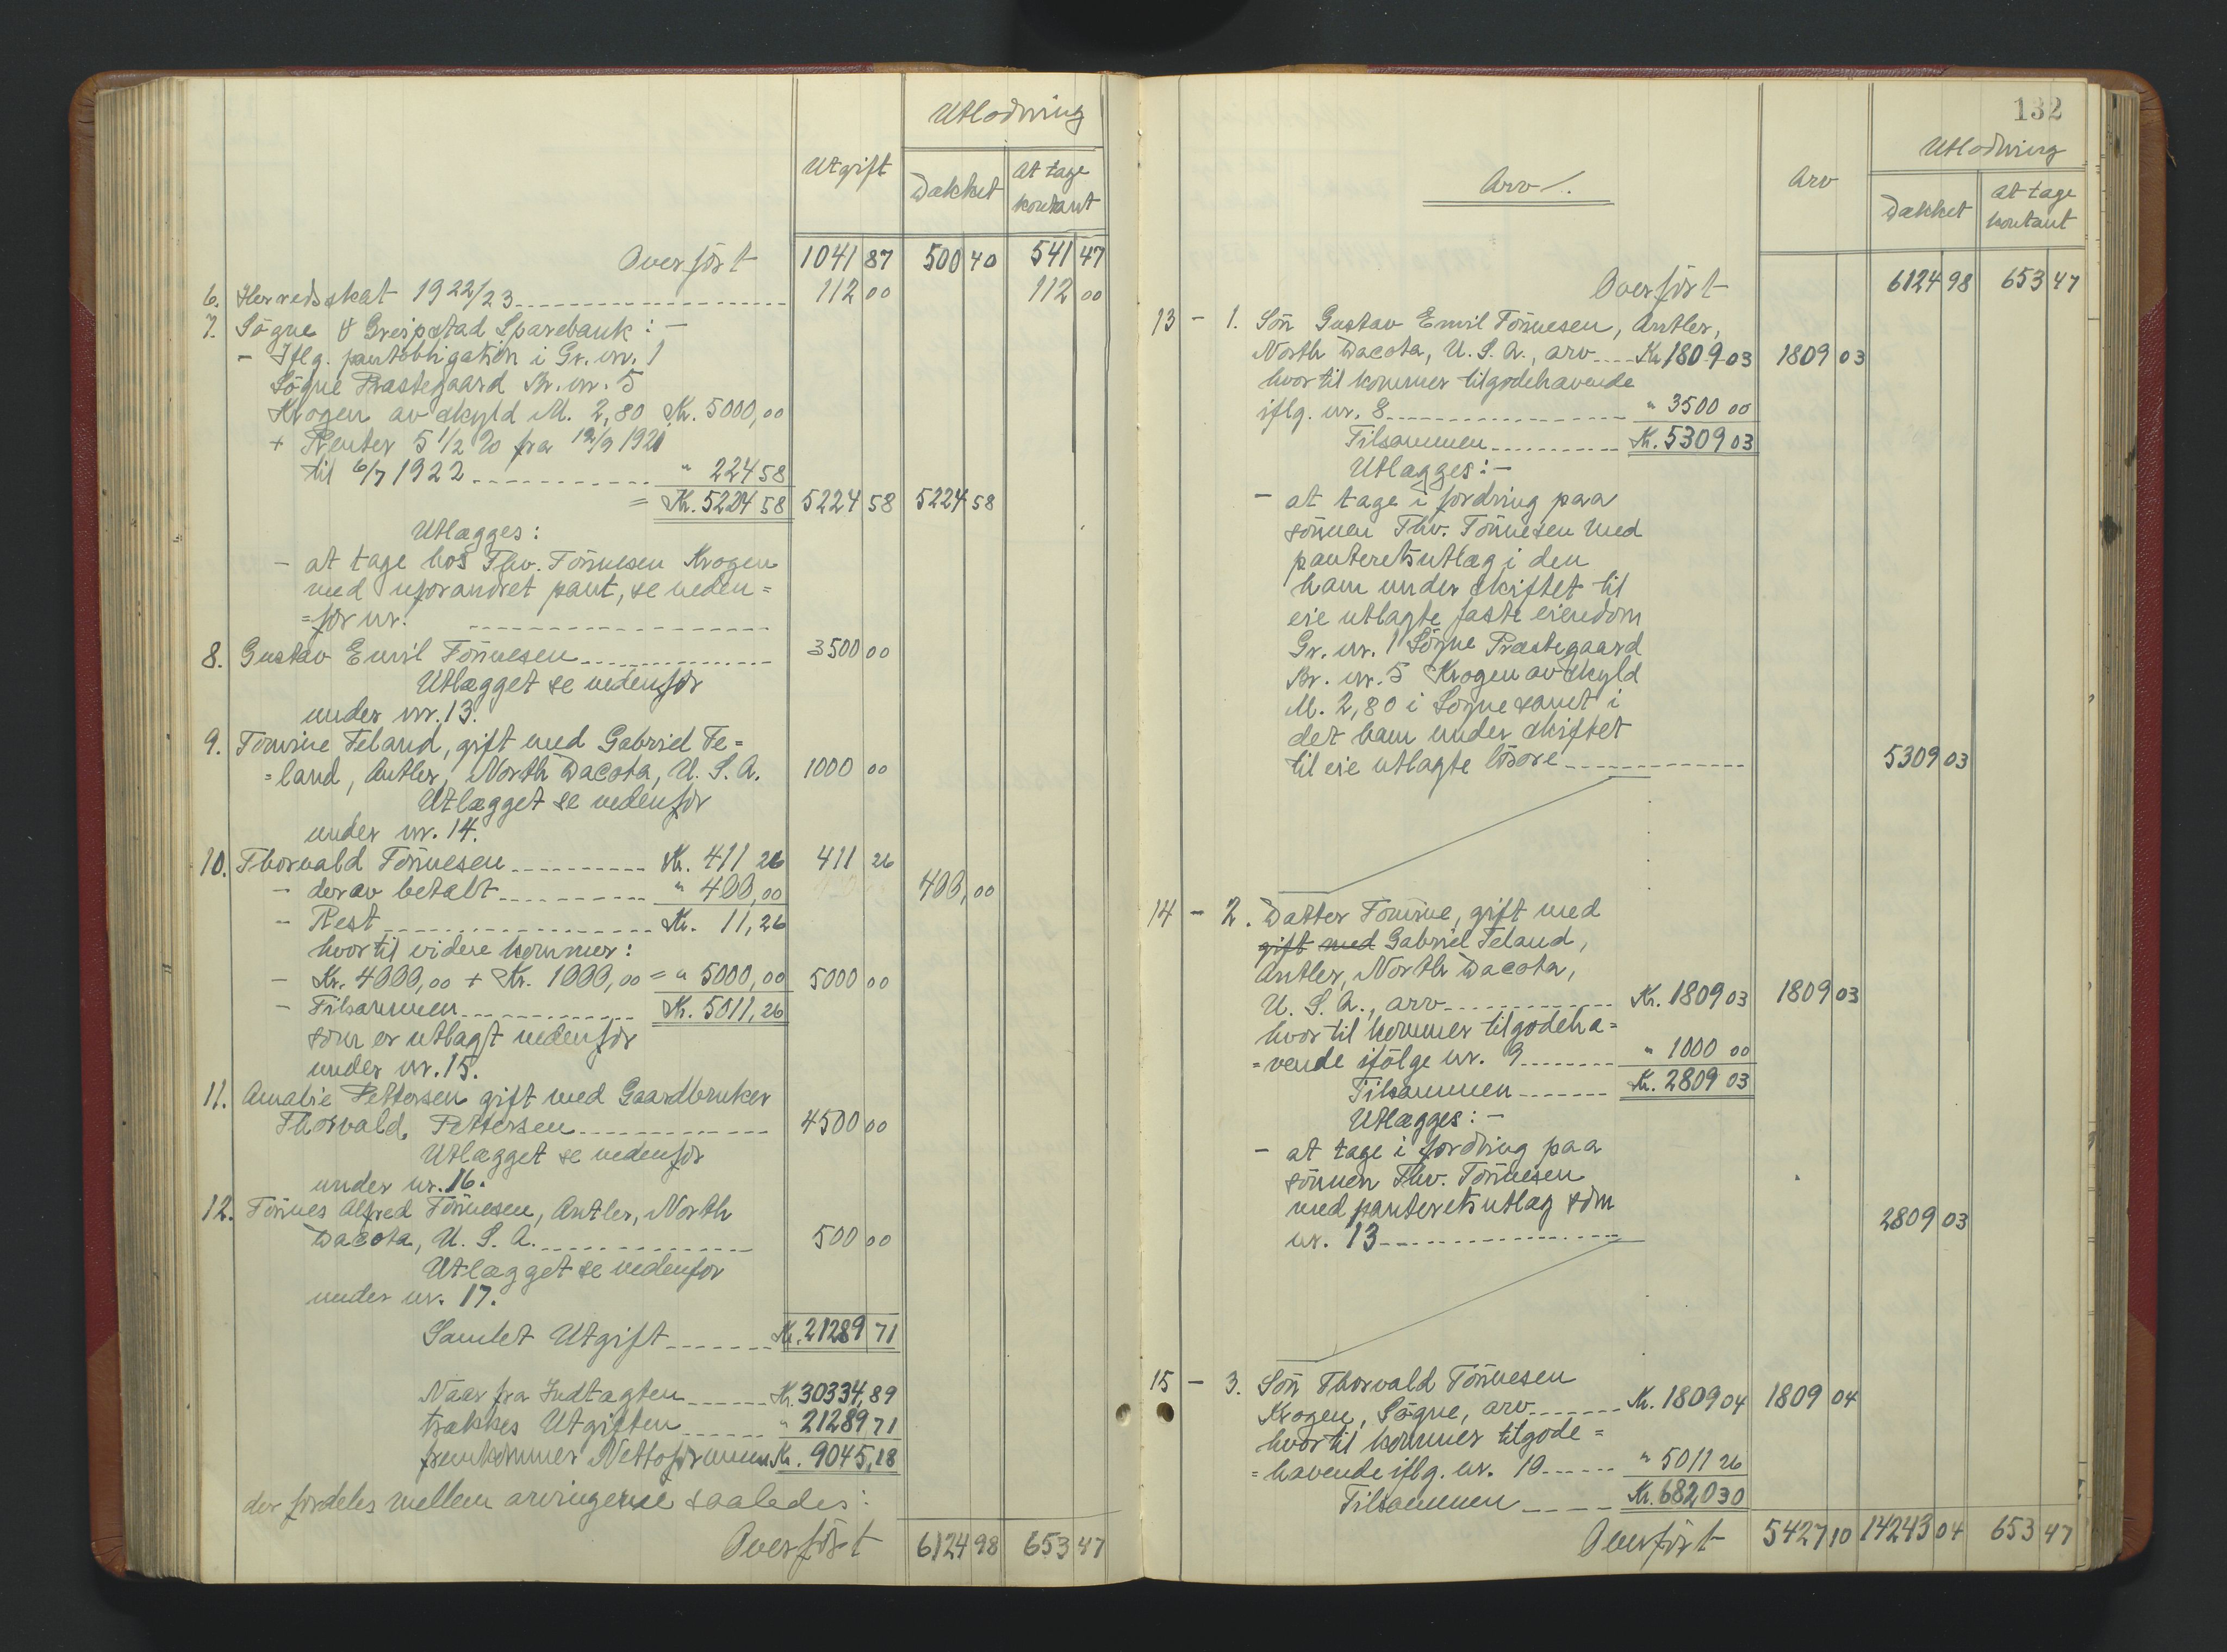 Utlodning
Utgift
Dækket
At tage
kontant
Overført 1041 87 500 40 541 47
6. Herredsskat 1922/23 112 00 112 00
7. Søgne & Greipstad Sparebank : -
- Iflg. pantobligation i Gr. nr. 1
Søgne Præstegaard Br. nr. 5
Krogen av skyld M. 2,80 Kr. 5000,00
+ Renter 5 1/2 % fra 12/9 1921
til 6/7 1922 " 224 58
= Kr. 5224 58 5224 58 5224 58
Utlægges :
- at tage hos Thv. Tönnesen Krogen
med uforandret pant, se neden=
=for nr.
8. Gustav Emil Tönnesen 3500 00
Utlægget se nedenfor
under nr. 13.
9. Tomine Teland, gift med Gabriel Te=
=land, Antler, North Dacota, U. S. A. 1000 00
Utlægget se nedenfor
under nr. 14.
10. Thorvald Tönnesen Kr. 411 26 411 26
- derav betalt " 400,00 400,00
- Rest Kr. 11,26
hvortil videre kommer :
- Kr. 4000,00 + Kr. 1000,00 = " 5000,00 5000 00
- Tilsammen Kr. 5011,26
som er utlagt nedenfor
under nr. 15.
11. Amalie Pettersen gift med Gaardbruker
Thorvald Pettersen 4500 00
Utlægget se nedenfor
under nr. 16.
12. Tönnes Alfred Tönnesen, Antler, North
Dacota, U. S. A. 500 00
Utlægget se nedenfor
under nr. 17.
Samlet Utgift Kr. 21289 71
Naar fra Indtægten Kr. 30334,89
trækkes Utgiften " 21289,71
fremkommer Nettoformuen Kr. 9045,18
der fordeles mellem arvingerne saaledes :
Overført 6124 98 653 47
132
Utlodning
Arv /.
Arv
Dækket
At tage
kontant
Overført 6124 98 653 47
13 - 1. Sön Gustav Emil Tönnesen, Antler,
North Dacota, U. S. A., arv Kr 1809 03 1809 03
hvortil kommer tilgodehavende
iflg. nr. 8 " 3500 00
Tilsammen Kr. 5309 03
Utlægges : -
- at tage i fordring paa
sönnen Thv. Tönnesen med
panteretsutlæg i den
ham under skiftet til
eie utlagte faste eiendom
Gr. nr. 1 Søgne Præstegaard
Br. nr. 5 Krogen av skyld
M. 2,80 i Søgne samt i
det ham under skiftet
til eie utlagte lösøre 5309 03
14 - 2. Datter Tomine, gift med
gift med Gabriel Teland,
Antler, North Dacota,
U. S. A., arv Kr. 1809 03 1809 03
hvortil kommer tilgodeha=
=vende ifölge nr. 9 " 1000 00
Tilsammen Kr. 2809 03
Utlægges : -
- at tage i fordring paa
sönnen Thv. Tönnesen
med panteretsutlæg som
nr. 13 2809 03
15 - 3. Sön Thorvald Tönnesen
Krogen, Søgne, arv Kr. 1809 04 1809 04
hvortil kommer tilgode=
=havende iflg. nr. 10 " 5011 26
Tilsammen Kr. 6820 30
Overført 5427 10 14243 04 653 47